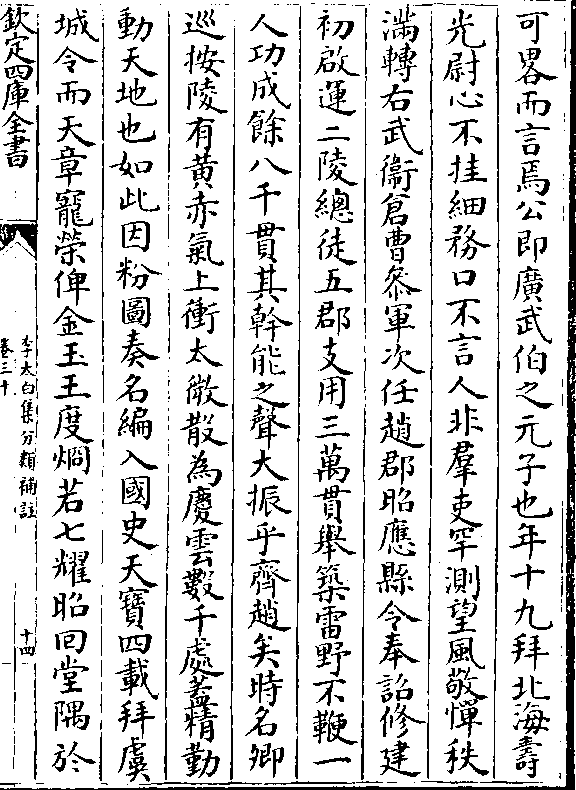 可畧而言焉公即廣武伯之元子也年十九拜北海壽
光尉心不挂細務口不言人非羣吏罕測望風敬憚秩
滿轉右武衞倉曹叅軍次任趙郡昭應縣令奉詔修建
初啟運二陵總徒五郡支用三萬貫舉築雷野不鞭一
人功成餘八千貫其幹能之聲大振乎齊趙矣時名卿
巡按陵有黄赤氣上衝太微散為慶雲數千處葢精勤
動天地也如此因粉圖奏名編入國史天寶四載拜虞
城令而天章寵榮俾金玉王度爓若七耀昭回堂隅於
欽定四庫全書
李太白集分類補註
卷三十
十四